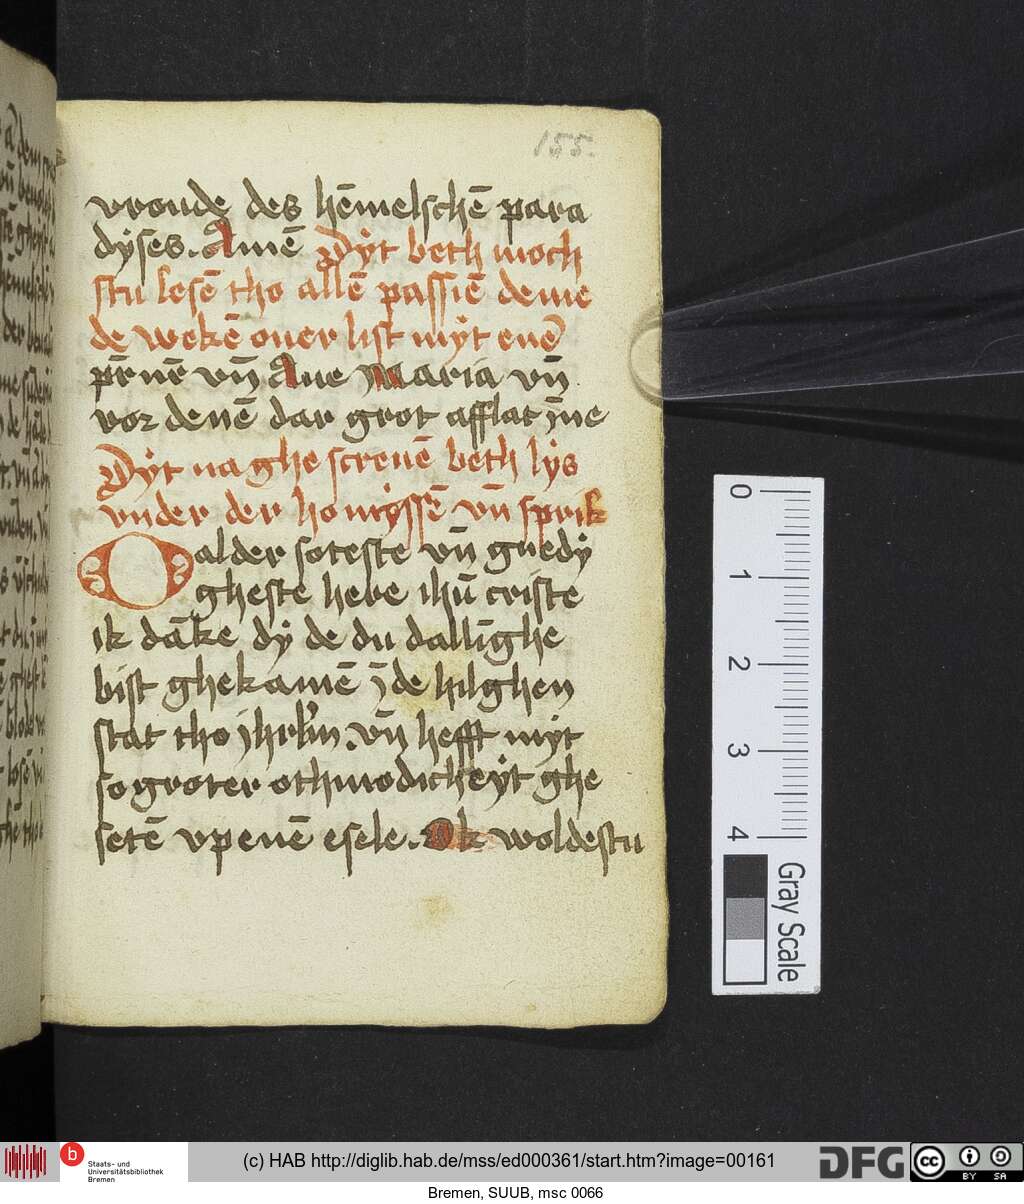 155.
vroude des hēmelschē para
dÿses. Amē Dÿt beth moch
stu lesē tho allē passiē deme
de wekē ouer list mÿt enē
pr̄nr̄ vn̄ Aue Maria vn̄
vor denē dar grot afflat ȳne
Dÿt naghe screuē beth lÿs
vnder der ho mÿssē vn̄ sprik
O alder soteste vn̄ guedÿ
gheste here ihū criste
ik dāke dÿ de du dallīghe
bist ghekamē ȳ de hilghen
stat tho jhrl'm. vn̄ hefft mÿt
so groter othmodicheÿt ghe
setē vp enē esele. Ok woldestu
0
1
2
3
4
Gray Scale
b
Staats- und
Universitätsbibliothek
Bremen
(c) HAB http://diglib.hab.de/mss/ed000361/start.htm?image=00161
DFG
cc
BY SA
Bremen, SUUB, msc 0066